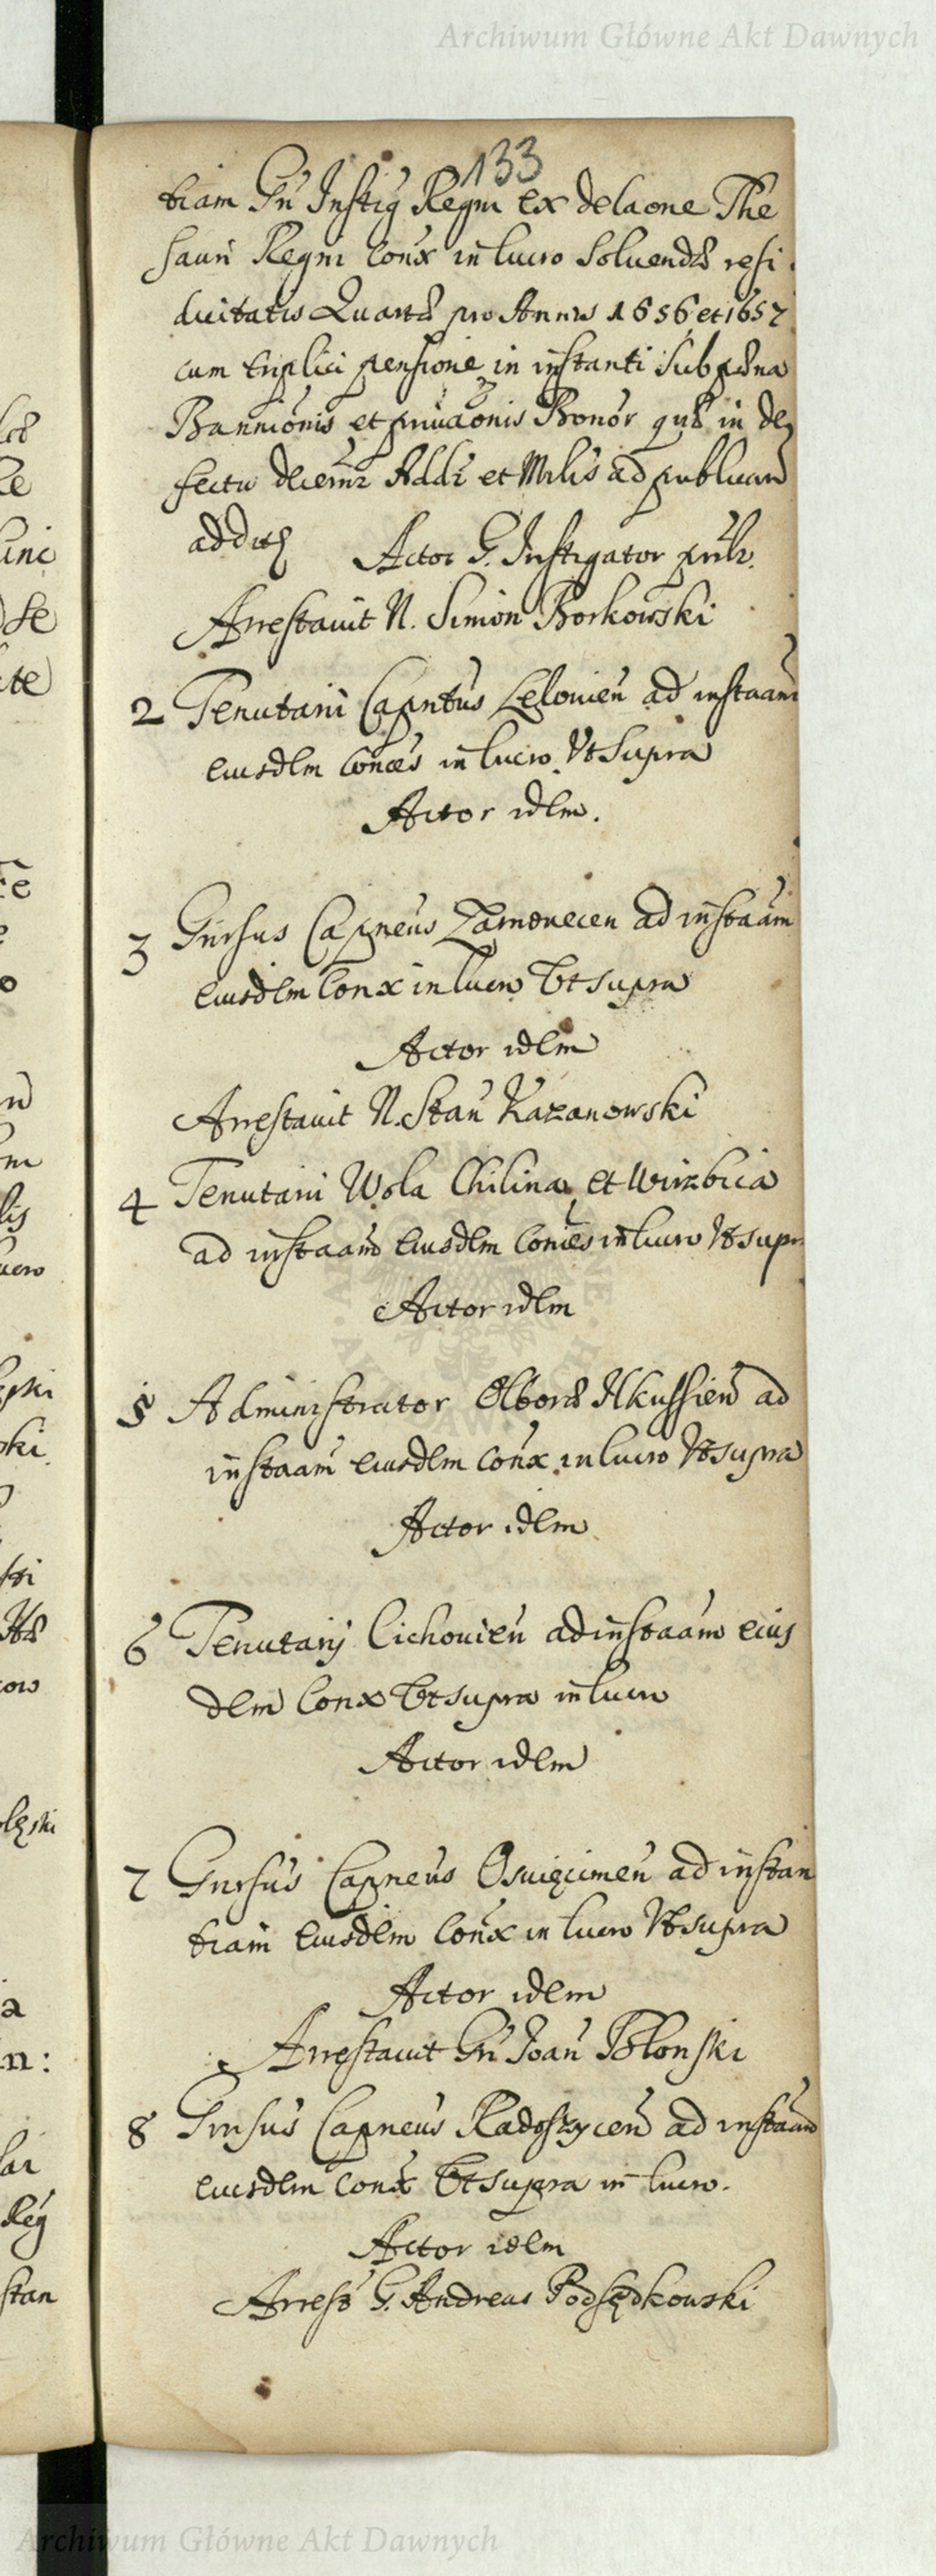 Archiwum Główne Akt Dawnych
133
tiam Gn Instig Regni ex delaone The
sauri Regni Conx in lucro Soluendæ resi
duitatis Quartæ pro Annis 1656 et 1657
cum triplici pensione in instanti sub pæna
Bannionis et priuaonis Bonor quæ in de
fectu
et Milis ad publicand
addict Actor G. Instigator publ.
Arrestauit N. Simon Borkowski
2 Tenutarii Capntus Lelouien ad instaam
eiusdem in lucro Vt Supra
Actor idem.
3 Gnrsus Capneus Zarnouecen ad instaam
eiusdem Conx in lucro Vt supra
Actor idem
Arrestauit N. Stan Kazanowski
4 Tenutarii Wola Chilina et Wirzbica
ad instaam eiusdem in lucro Vt supr
Actor idem
5 Administrator Olboræ Ilkussien ad
instaam eiusdem Conx in lucro Vt supra
Actor idem
6 Tenutarij Cichouien ad instaam eius
dem Conx Vt supra in lucro
Actor idem
7 Gnrsus Capneus Osuięcimen ad instan
tiam eiusdem Conx in lucro Vt supra
Actor idem
Arrestauit Gn Joan Polonski
8 Gnrsus Capneus Radoszycen ad instaam
eiusdem Conx Vt supra in lucro.
Actor idem
Arrest G. Andreas Podsędkowski
Archiwum Główne Akt Dawnych